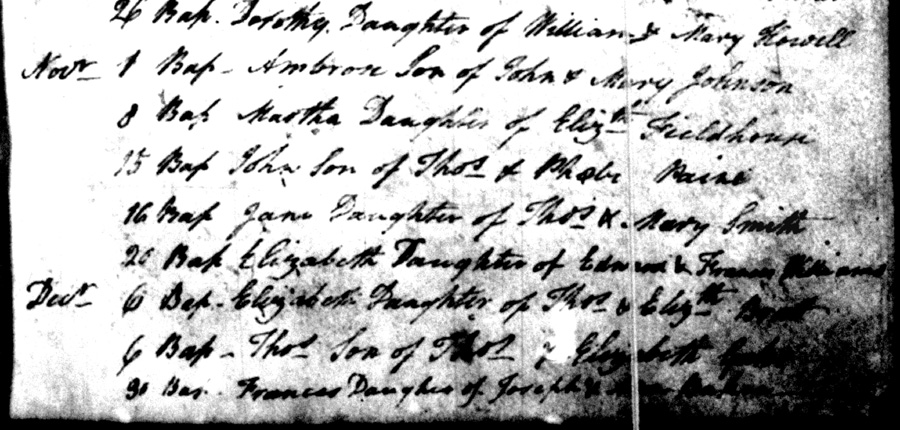 26 Bap. Dorothy Daughter of William & Mary Howell
Novr 1 Bap - Ambrose Son of John & Mary Johnson
8 Bap Martha Daughter of Elizth Fieldhouse
15 Bap John Son of Thos & Phœbe Paine
16 Bap Jane Daughter of Thos & Mary Smith
Bap Elizabeth Daughter of Edward & Frances Williams
Decr 6 Bap. Elizabeth Daughter of Thos & Elizth
6 Bap - Thos Son of Thos & Elizabeth
30 Bap. Frances Daughter of Joseph &